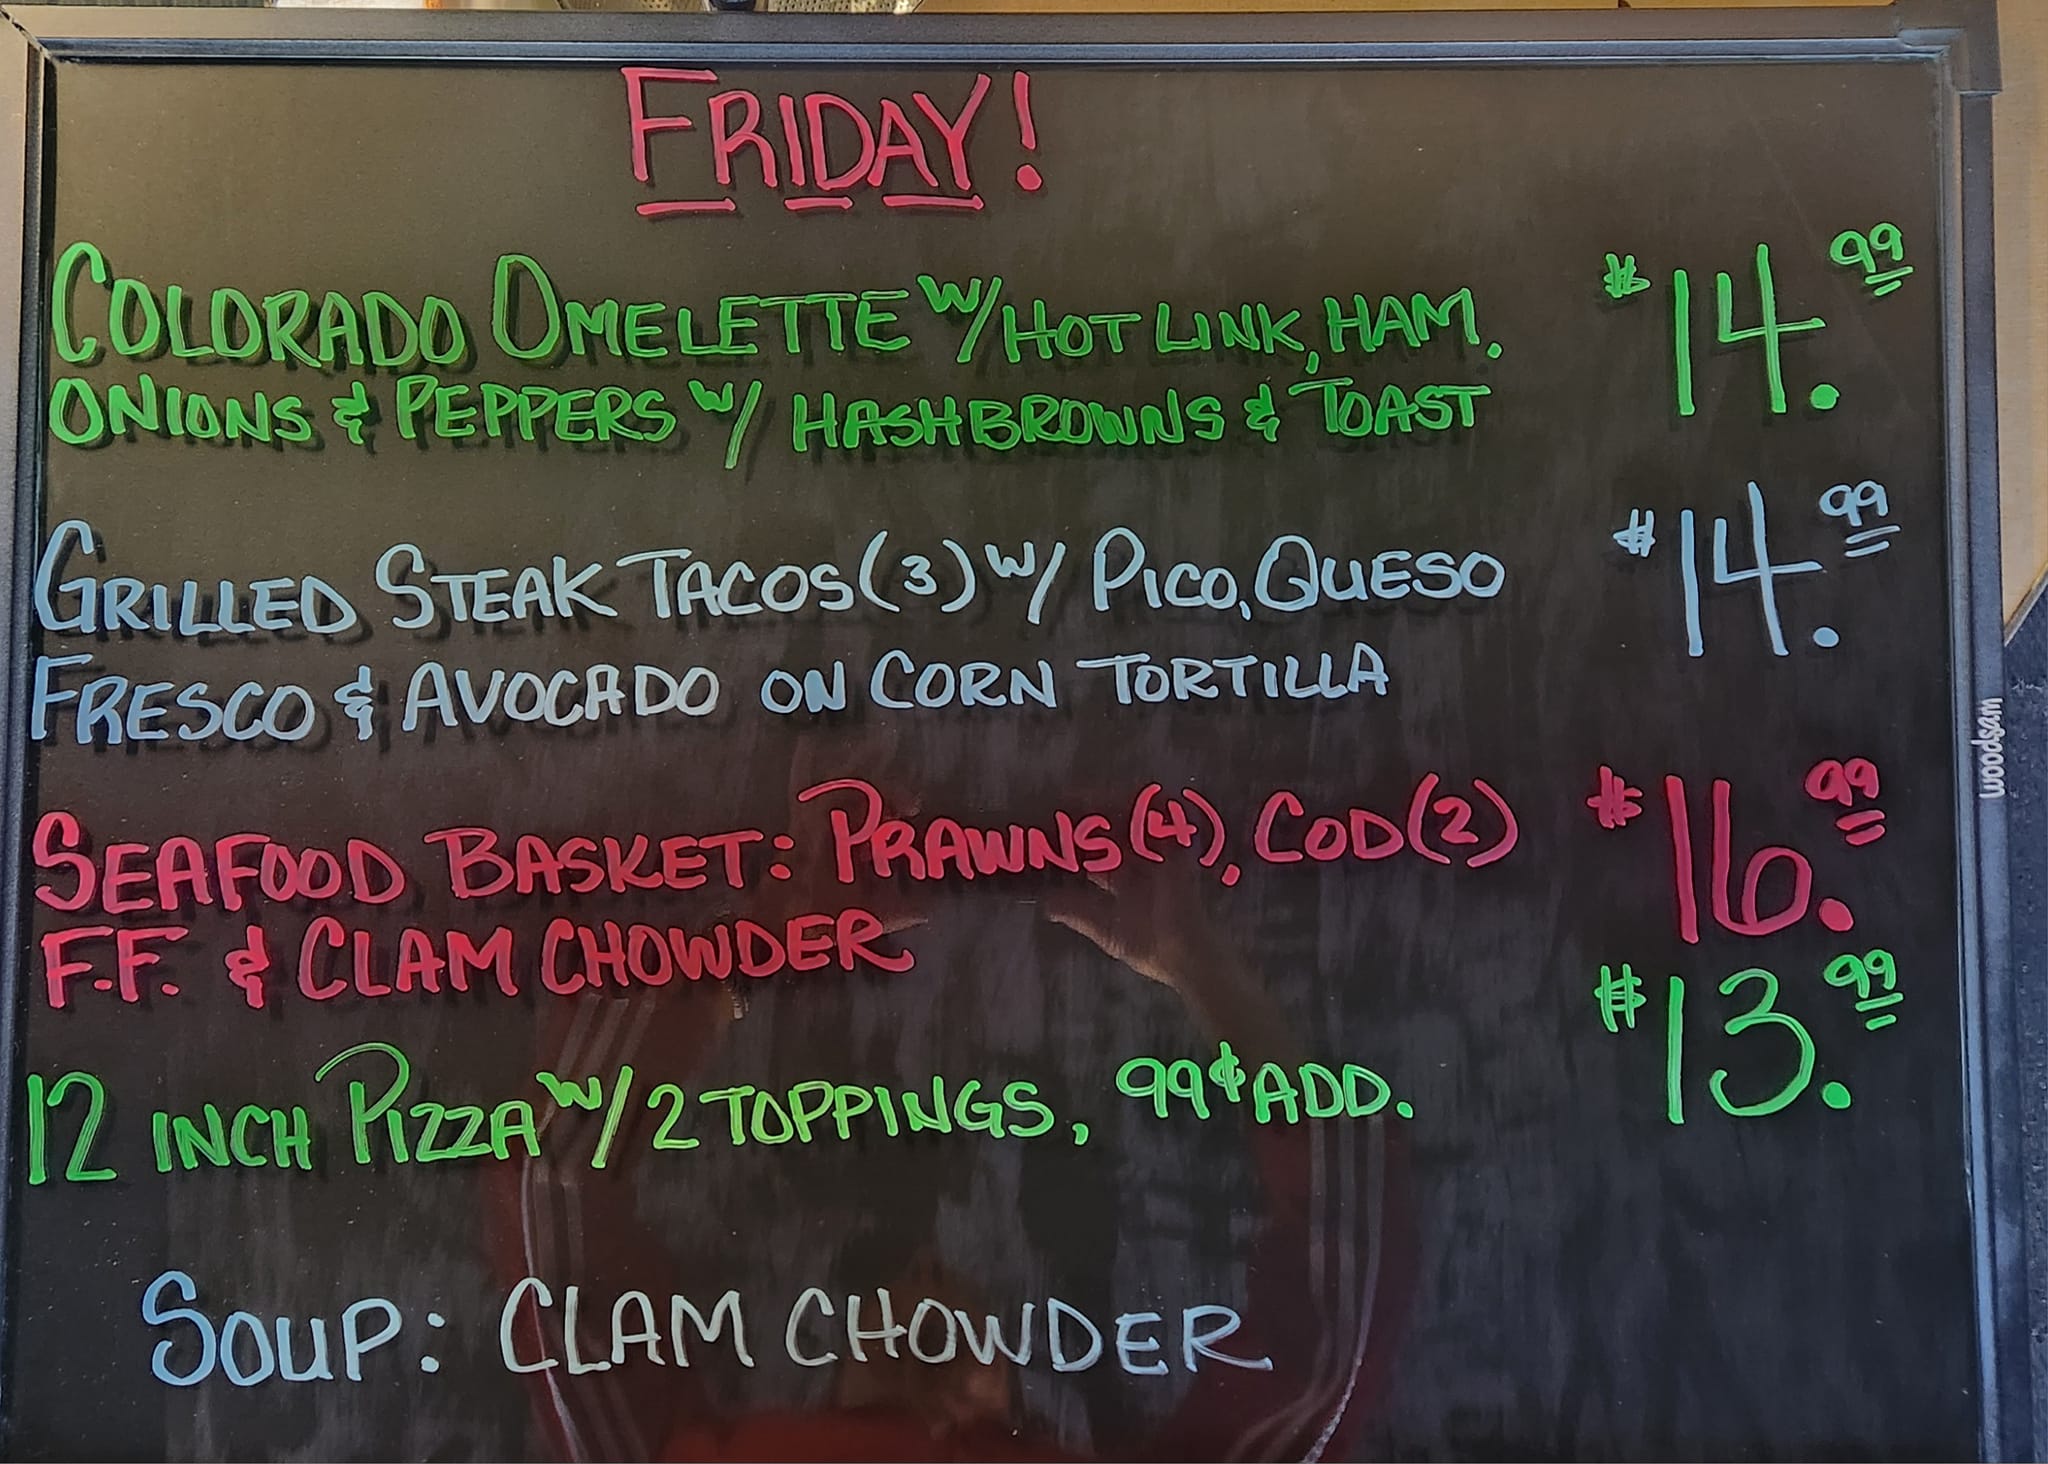 FRIDAY!
COLORADO OMELETTE W/ HOT LINK, HAM. $14.99
ONIONS & PEPPERS W/ HASHBROWNS & TOAST
GRILLED STEAK TACOS (3) W/ PICO, QUESO $14.99
FRESCO & AVOCADO ON CORN TORTILLA
SEAFOOD BASKET: PRAWNS (4), COD (2) $16.99
F.F. & CLAM CHOWDER
12 INCH PIZZA W/ 2 TOPPINGS, 99¢ ADD. $13.99
SOUP: CLAM CHOWDER
woodsam